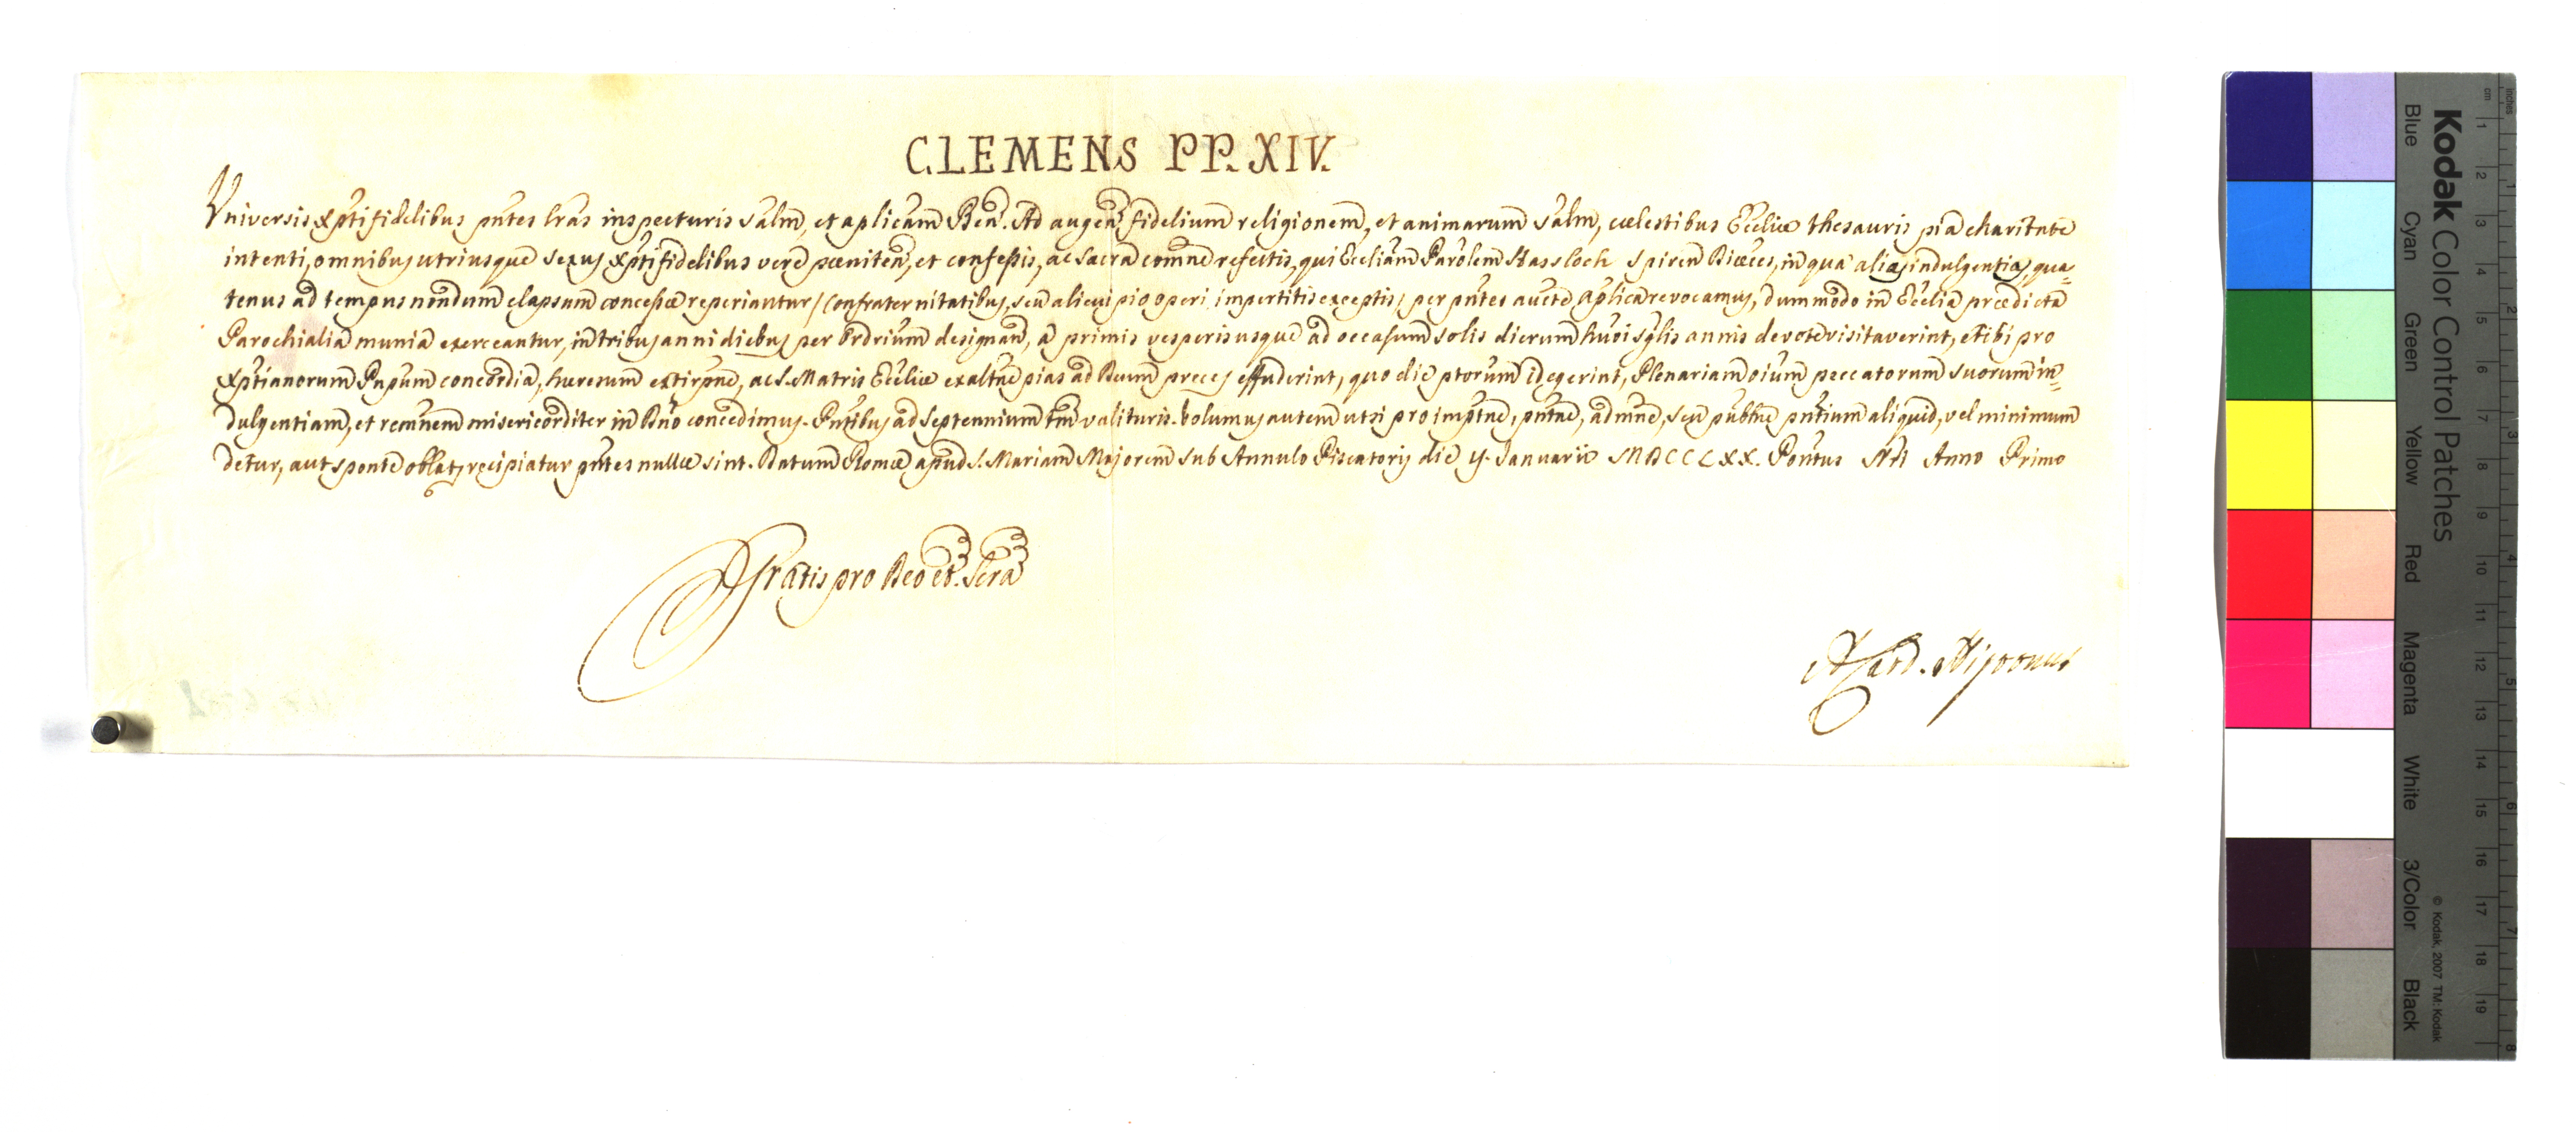 CLEMENS PP. XIV.
Universis Xpti fidelibus pntes lras inspecturis salm, et aplicam Ben. Ad augen fidelium religionem, et animarum salm, cœlestibus Eccliæ thesauris pia charitate
intenti, omnibus utriusque sexus Xpti fidelibus vere pœniten, et confessis, ac sacra comne refectis, qui Eccliam Parolem Hassloch Spiren Diœces, in qua aliæ indulgentiæ, qua-
tenus ad tempus nondum elapsum concessæ reperiantur / Confraternitatibus, seu alicui pio operi impertitis exceptis / per pntes aucte aplica revocamus, dummodo in Ecclia prædicta
Parochialia munia exerceantur, in tribus anni diebus per Ordrium designan, a primis vesperis usque ad occasum solis dierum hmoi sglis annis devote visitaverint, et ibi pro
Xptianorum Ppum concordia, hæresum extirpne, ac S. Matris Eccliæ exaltne pias ad Deum preces effuderint, quo die ptorum id egerint, Plenariam oium peccatorum suorum in-
dulgentiam, et remnem misericorditer in Dno concedimus. Pntibus ad Septennium tm valituris. Volumus autem ut si pro imptne, pntne, admne, seu publne pntium aliquid, vel minimum
detur, aut sponte oblat, recipiatur pntes nullæ sint. Datum Romæ apud S. Mariam Majorem sub Annulo Piscatoris die y. Januarii MDCCLXX. Pontus Nri Anno Primo
Gratis pro Deo et Scra
Kodak Color Control Patches
Blue Cyan Green Yellow Red Magenta White 3/Color Black
© Kodak, 2007 TM: Kodak
cm 1 2 3 4 5 6 7 8 9 10 11 12 13 14 15 16 17 18 19
inches 1 2 3 4 5 6 7 8